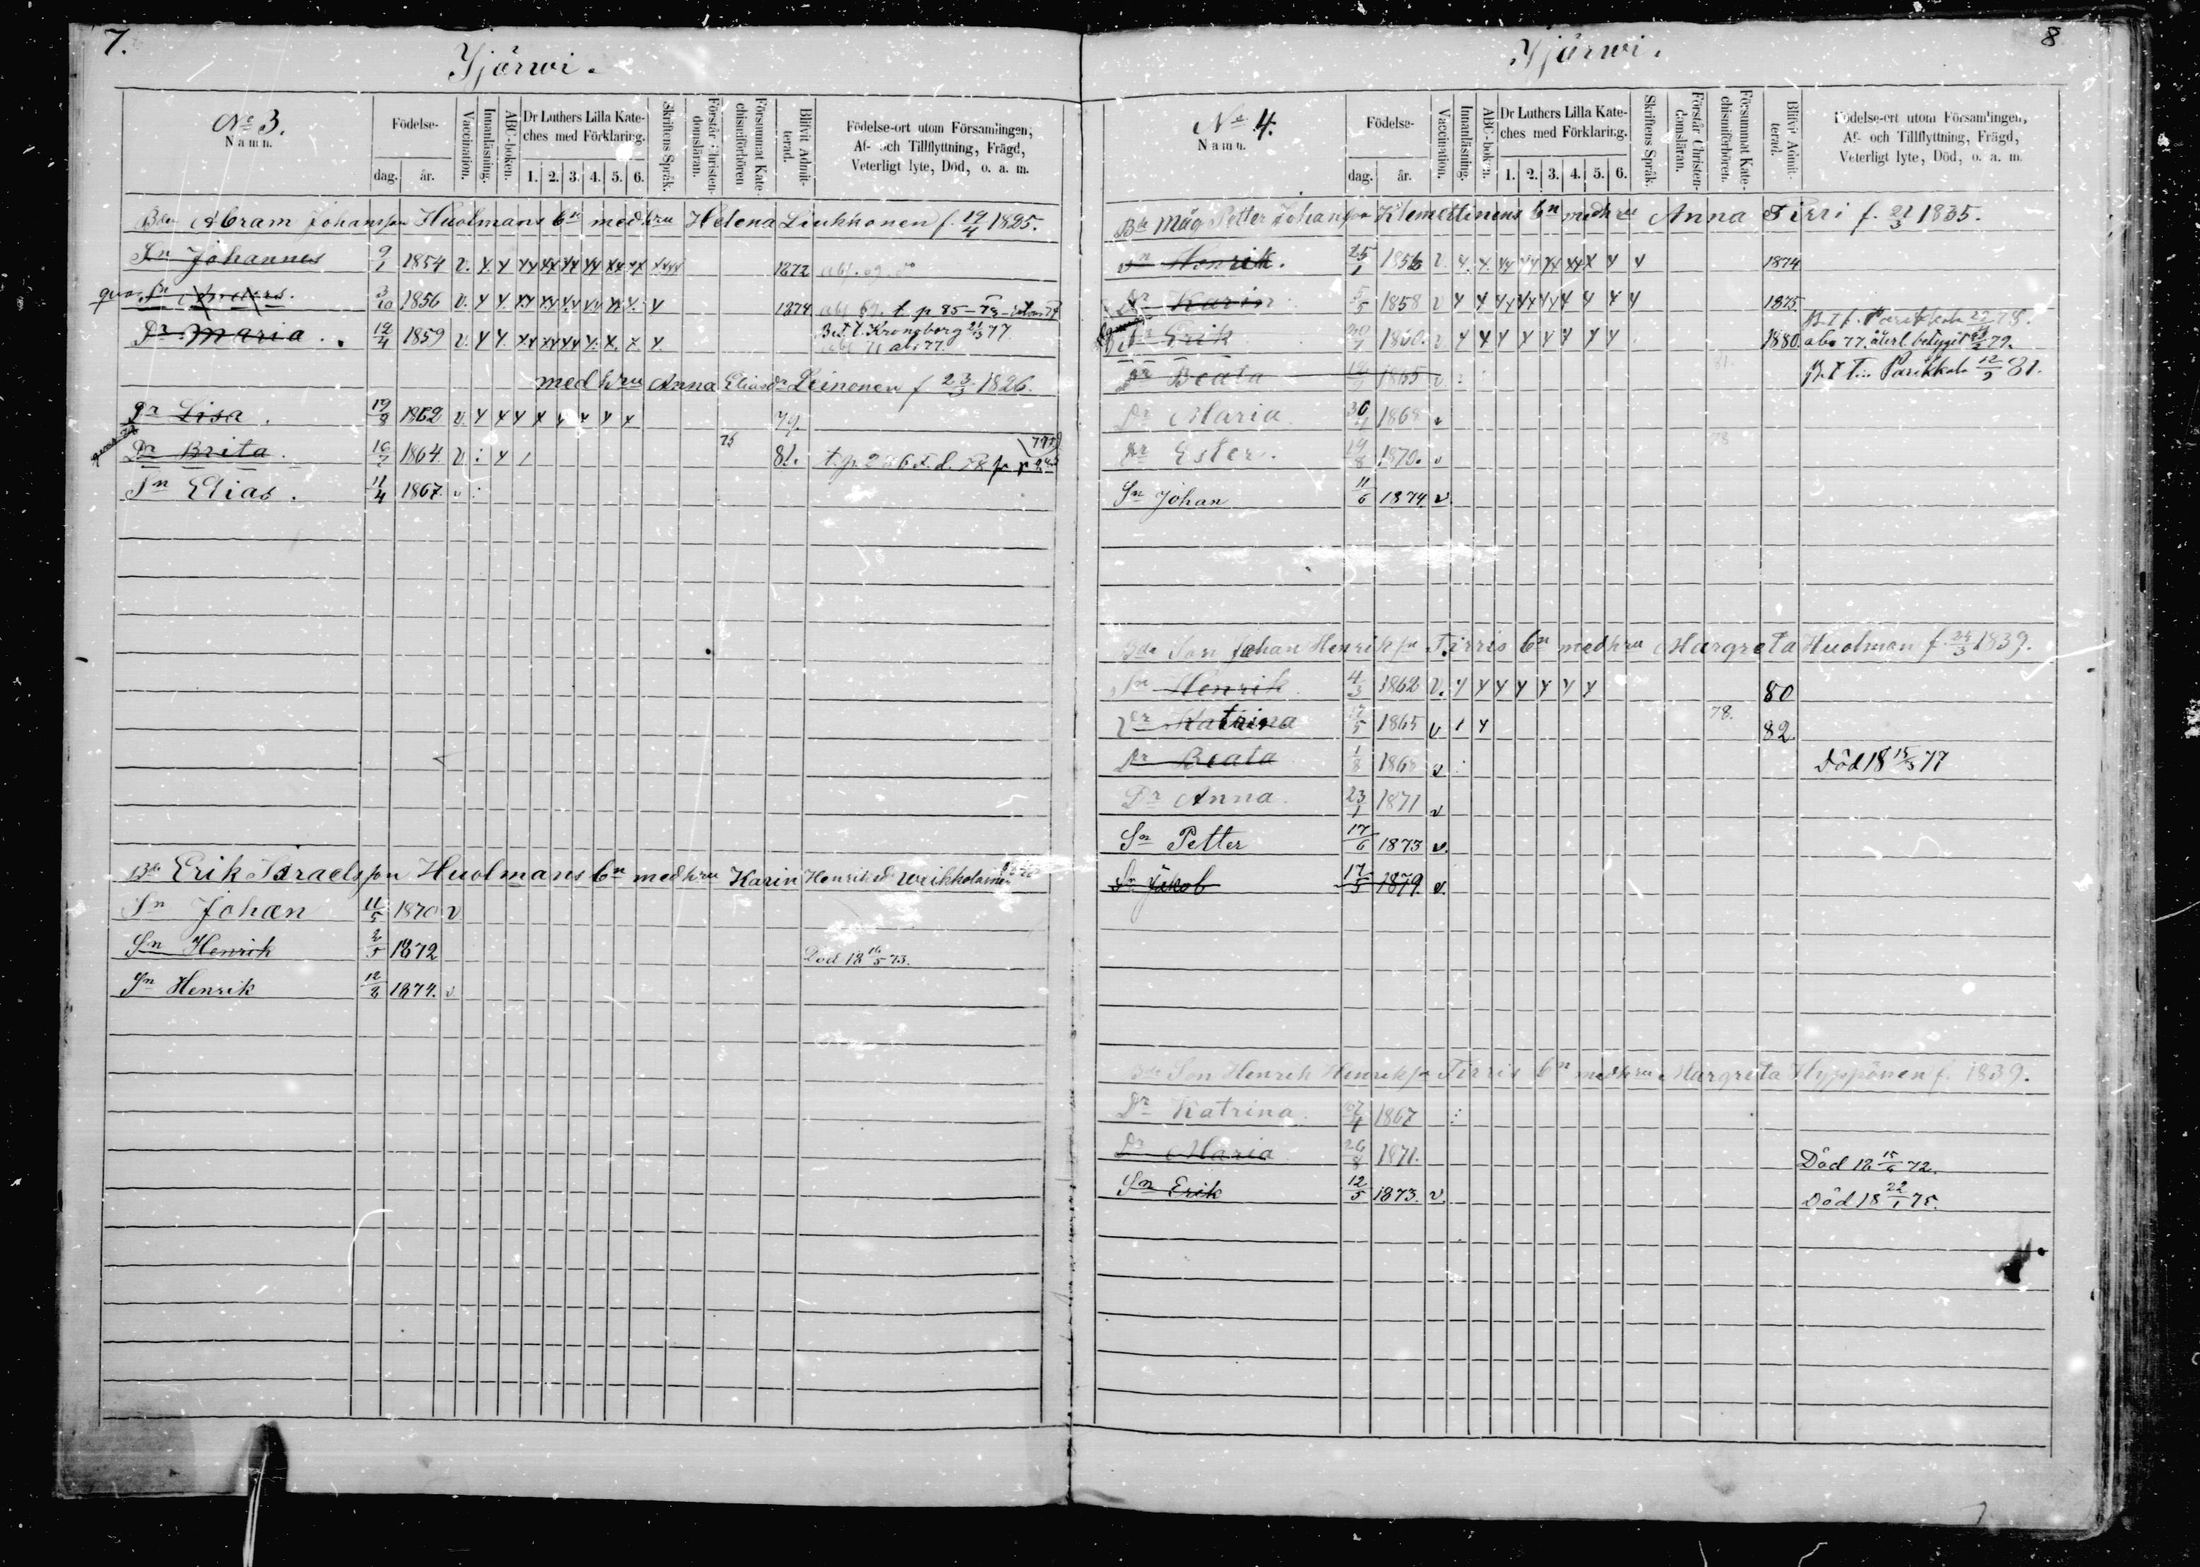 7.
Yjärwi.
No 3.
Namn.
Födelse-
dag. år.
Vaccination.
Innanläsning.
ABC-boken.
Dr Luthers Lilla Kate-
ches med Förklaring.
1. 2. 3. 4. 5. 6.
Skriftens Språk.
Förstår Christen-
domsläran.
Försummat Kate-
chismiförhören
Blifvit Admit-
terad.
Födelse-ort utom Församlingen,
Af- och Tillflyttning, Frägd,
Veterligt lyte, Död, o. a. m.
Bde Abram Johansson Huolmans bn med hru Helena Liukkonen f. 19/4 1825.
Sn Johannes 9/1 1854 v. 1872
3/10 1856 v. 1874 t. p 85
Dr Maria 19/4 1859 v. B.t.t. Kronoborg 77
abs. 77.
med hru Anna Eliasdr Leinonen f 23/3 1826.
Dr Lisa. 19/9 1862 v. 79.
Dr Brita. 16/7 1864 v. 75 81.
Sn Elias. 11/4 1867. v
Bde Erik Israelsson Huolmans bn med hru Karin Henriksd Weikkolainen
Sn Johan 11/5 1870 v
Sn Henrik 2/5 1872 Död 18 16/5 73.
Sn Henrik 12/8 1874. v
8
Yjärwi.
No 4.
Namn.
Födelse-
dag. år.
Vaccination.
Innanläsning.
ABC-boken.
Dr Luthers Lilla Kate-
ches med Förklaring.
1. 2. 3. 4. 5. 6.
Skriftens Språk.
Förstår Christen-
domsläran.
Försummat Kate-
chismiförhören.
Blifvit Admit-
terad.
Födelse-ort utom Församlingen,
Af- och Tillflyttning, Frägd,
Veterligt lyte, Död, o. a. m.
Bde Måg Petter Johansson Klemettinens bn med hru Anna Tirri f. 21/3 1835.
Sn Henrik. 25/1 1856 v. 1874
Dr Karin 5/5 1858 v 1875.
B.t.t. Parikkala 78.
Sn Erik 1860. v. 1880. abs 77. återl. betyget 79.
Dr Beata 1865 v. B.t.t. Parikkala 12/9 81.
Dr Maria 30/4 1868 v
Dr Ester. 19/8 1870. v 78
Sn Johan 11/6 1874. v.
Bde Son Johan Henriksn Tirris bn med hru Margreta Huolman f. 24/3 1839.
Sn Henrik 4/3 1862 v. 80
Dr Katrina 17/5 1865 v 78. 82.
Dr Beata 1/8 1868 v Död 18 15/3 77
Dr Anna. 23/1 1871 v
Sn Petter 17/6 1873 v.
Sn Jakob 17/5 1879. v.
Bde Son Henrik Henriksn Tirris bn med hru Margreta Hyppönen f. 1839.
Dr Katrina. 27/4 1867
Dr Maria 26/8 1871. Död 18 15/6 72.
Sn Erik 12/5 1873. v. Död 18 22/1 75.